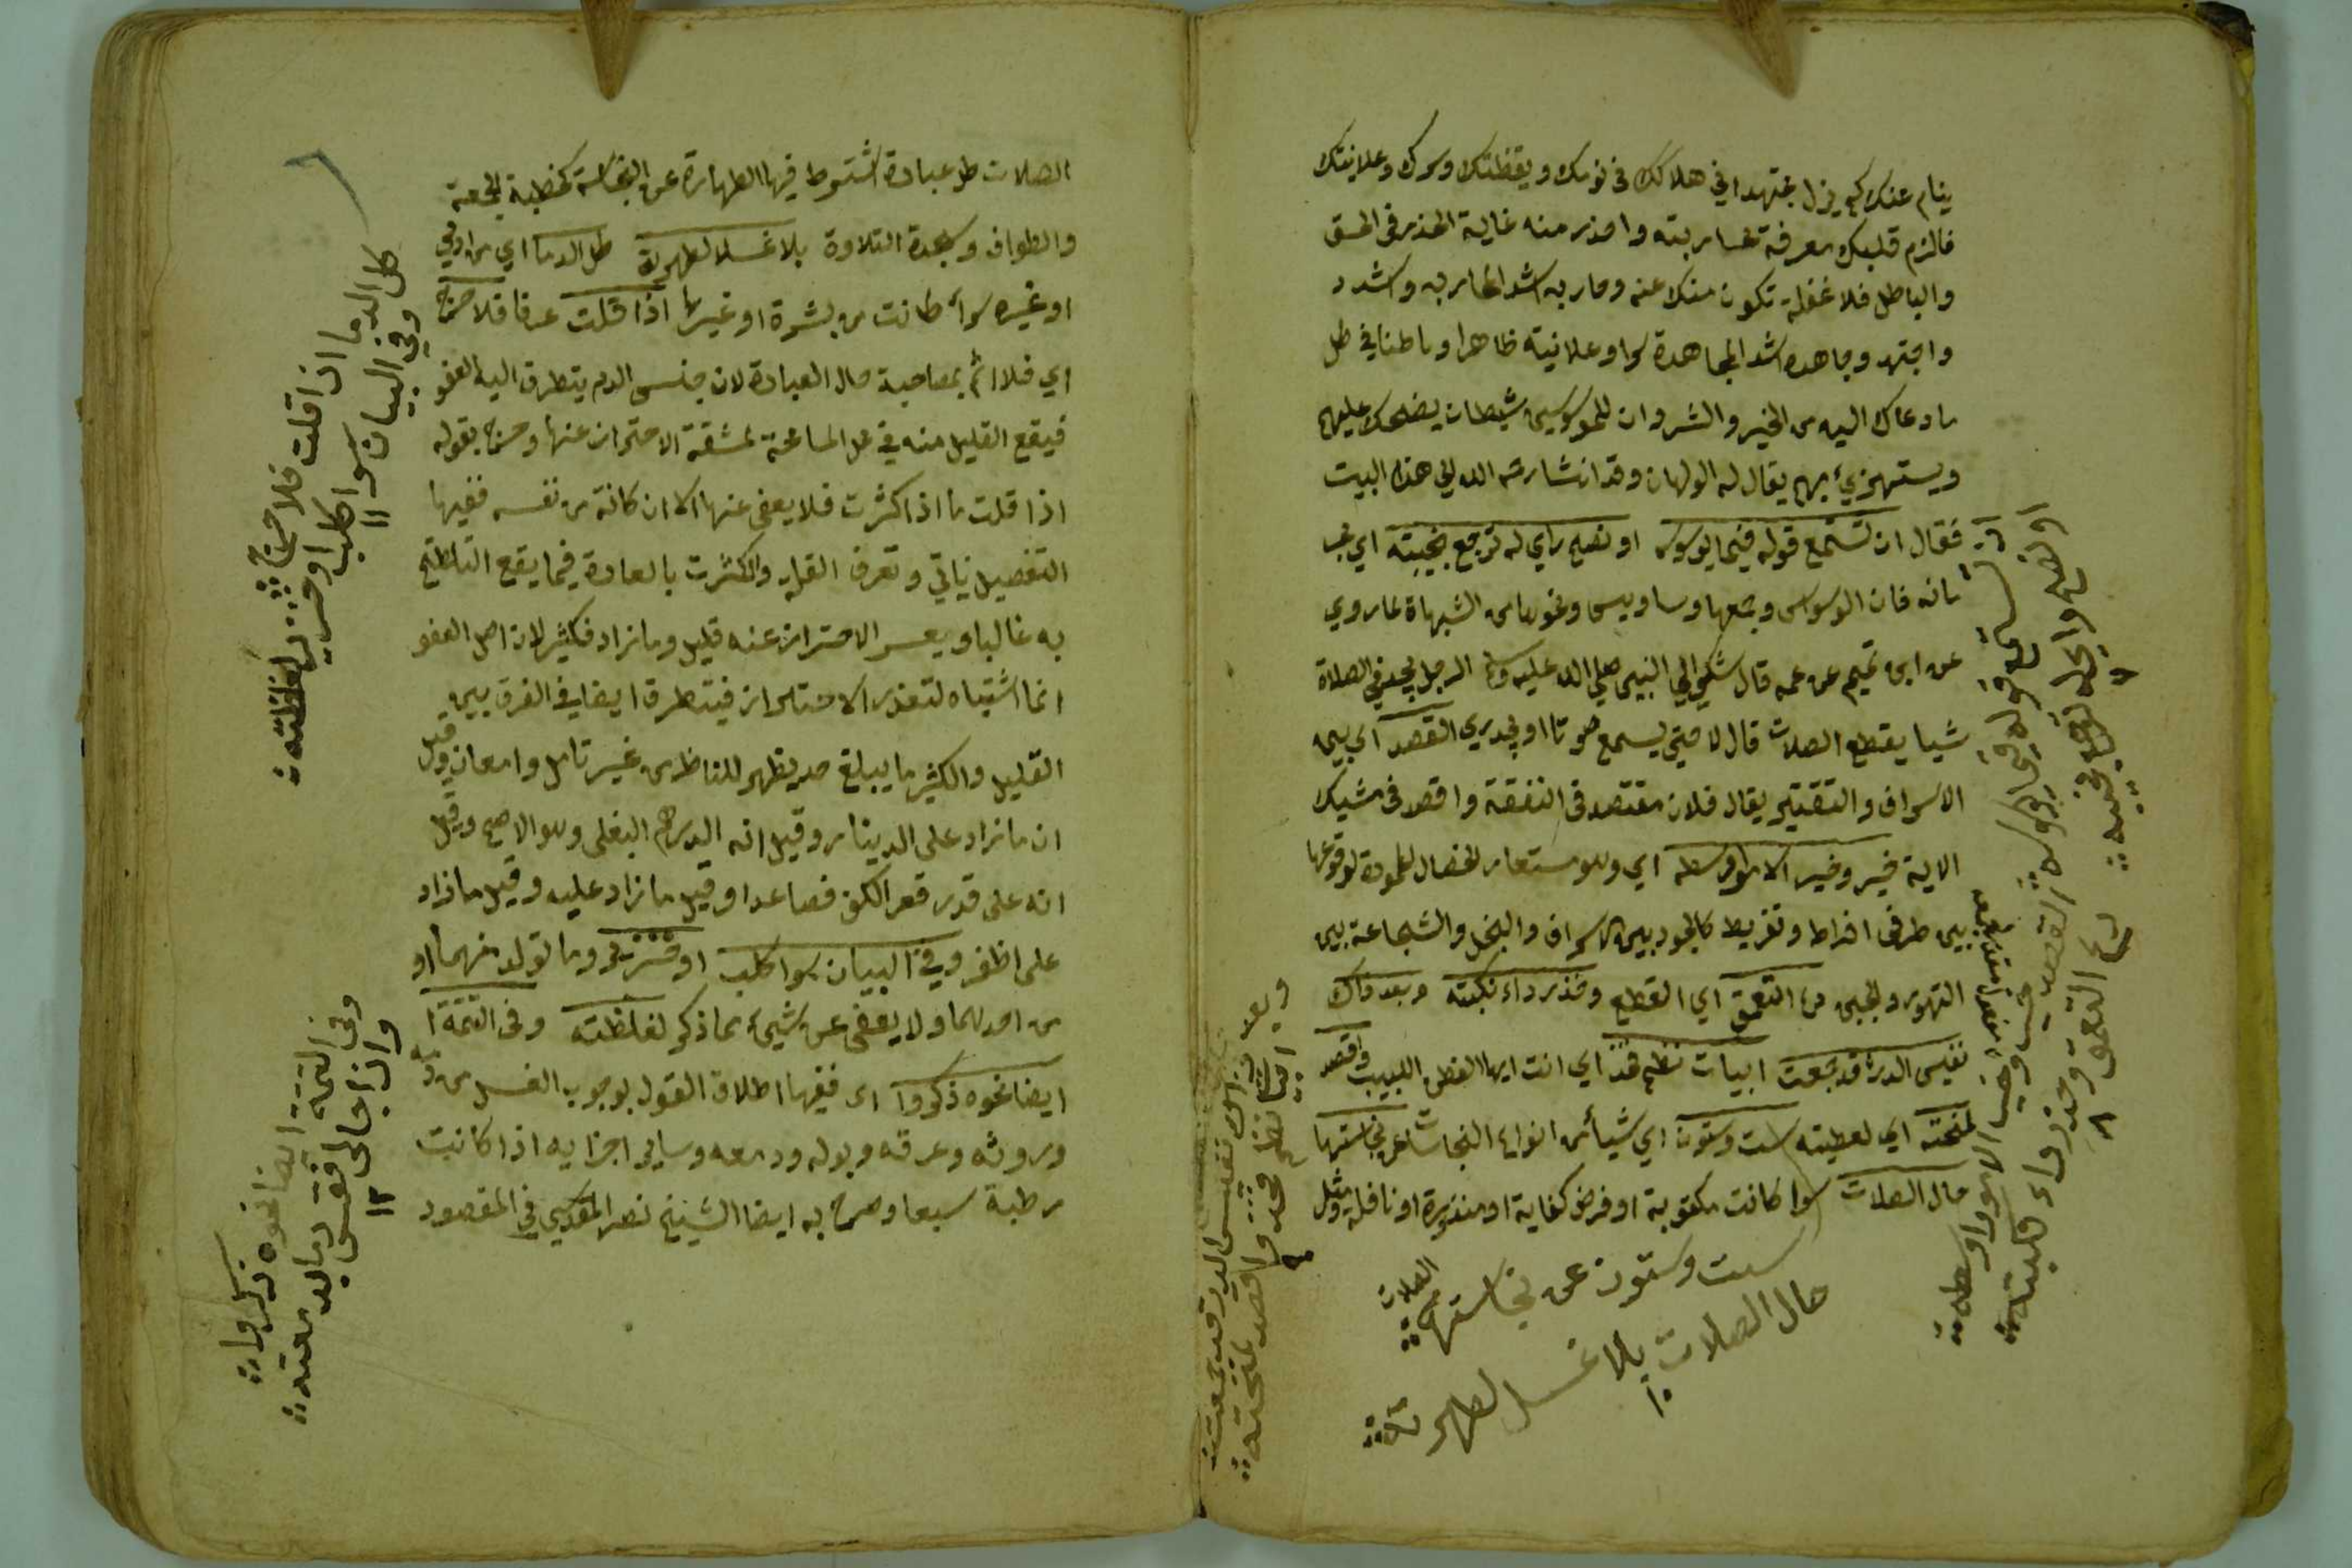 ينام عنك كم يزل مجتهدا في هلاكك في نومك ويقظتك وسرك وعلانيتك
فالزم قلبك معرفة محاربته واحذر منه غاية الحذر في الحق
والباطل فلا غفلة تكون منك عنه وحاربه اشد المحاربه واشدد
واجتهد وجاهده اشد المجاهدة سرا وعلانية ظاهرا وباطنا في كل
ما دعاك اليه من الخير والشر وان للموسوسين شيطان يضحك عليهم
ويستهزيء بهم يقال له الولهان وقد اشار الى هذه البيت
فقال ان تستمع قوله في الوسوس او نصح راي له ترجع بخيبته اي
فان الوسوس وجمعها وساويس ونحوها من الشبهاة لما روي
عن ابن تميم عن عمه قال شكي الى النبي صلى الله عليه وسلم الرجل يجد في الصلاة
شيا يقطع الصلات قال لا حتى يسمع صوتا او يجد ريح القصد اي بين
الاسراف والتقتير يقال فلان مقتصد في النفقة واقصد في مشيك
الاية خير وخير الامور اوسطه اي وهو مستعار لخصال المحمودة لوقوعها
بين طرفي افراط وتفريط كالجود بين الاسراف والبخل والشجاعة بين
التهور والجبن دع التعمق اي القطع وحذر داء نكبته وبعد ذاك
نفيس الدر قد جمعت ابيات نظم فخذ اي انت ايها الفطن اللبيب واقصد
لمنحته اي لعطيته ست وستون اي شيأ من انواع النجاسات عن نجاستها
حال الصلات سوا كانت مكتوبة او فرض كفاية او منذورة او نافلة ومثل
ست وستون عن نجاستها
حال الصلات بلا غسل لطهرته
١٠
او نصح راي له ترجع بخيبته
٧
ان تستمع قوله في الوسوسة
القصد خير وخير الامور اوسطه
دع التعمق وحذر داء نكبته
٨
وبعد ذاك نفيس الدر قد جمعت
ابيات نظم فخذ واقصد لمنحته
٩
الصلات كل عبادة اشتوط فيها الطهارة عن النجاسة كخطبة الجمعة
والطواف وسجدة التلاوة بلا غسل لطهرته كل الدما اي من ادمي
او غيره سوأ كانت من بشرة او غيرها اذا قلت عرفا فلا حرج
اي فلا اثم بمصاحبة حال العبادة لان جنس الدم يتطرق اليه العفو
فيقع القليل منه في محل المسامحة لمشقة الاحتراز عنها وخرج بقوله
اذا قلت ما اذا كثرت فلا يعفى عنها الا ان كانة من نفسه ففيها
التفصيل ياتي وتعرف القلة والكثرت بالعادة فيما يقع التلطخ
به غالبا ويعسر الاحتراز عنه قليل وما زاد فكثير لان اصل العفو
انما اشتباه لتعذر الاحتراز فيتطرق ايضا في الفرق بين
القليل والكثير ما يبلغ حد يظهر للناظر من غير تامل وامعان وقيل
ان ما زاد على الدينار وقيل انه الدرهم البغلي وهو الاصح وقيل
انه على قدر قعر الكف فصاعدا وقيل ما زاد عليه وقيل ما زاد
على اظفر وفي البيان سوا كلب او خنزير وما تولد منهما او
من احدهما ولا يعفى عن شيء مما ذكر لغلظته وفي التتمة ا
ايضا نحوه ذكروا اي ففيها اطلاق القول بوجوب الغسل من
وروثه وعرقه وبوله ودمعه وساير اجزايه اذا كانت
رطبة سبعا وصرح به ايضا الشيخ نصر المقدسي في المقصود
كل الدما اذا قلت فلا حرج
وفي البيان سوا كلب او خنزير لغلظته
١١
وفي التتمة ايضا نحوه ذكروا
١٢